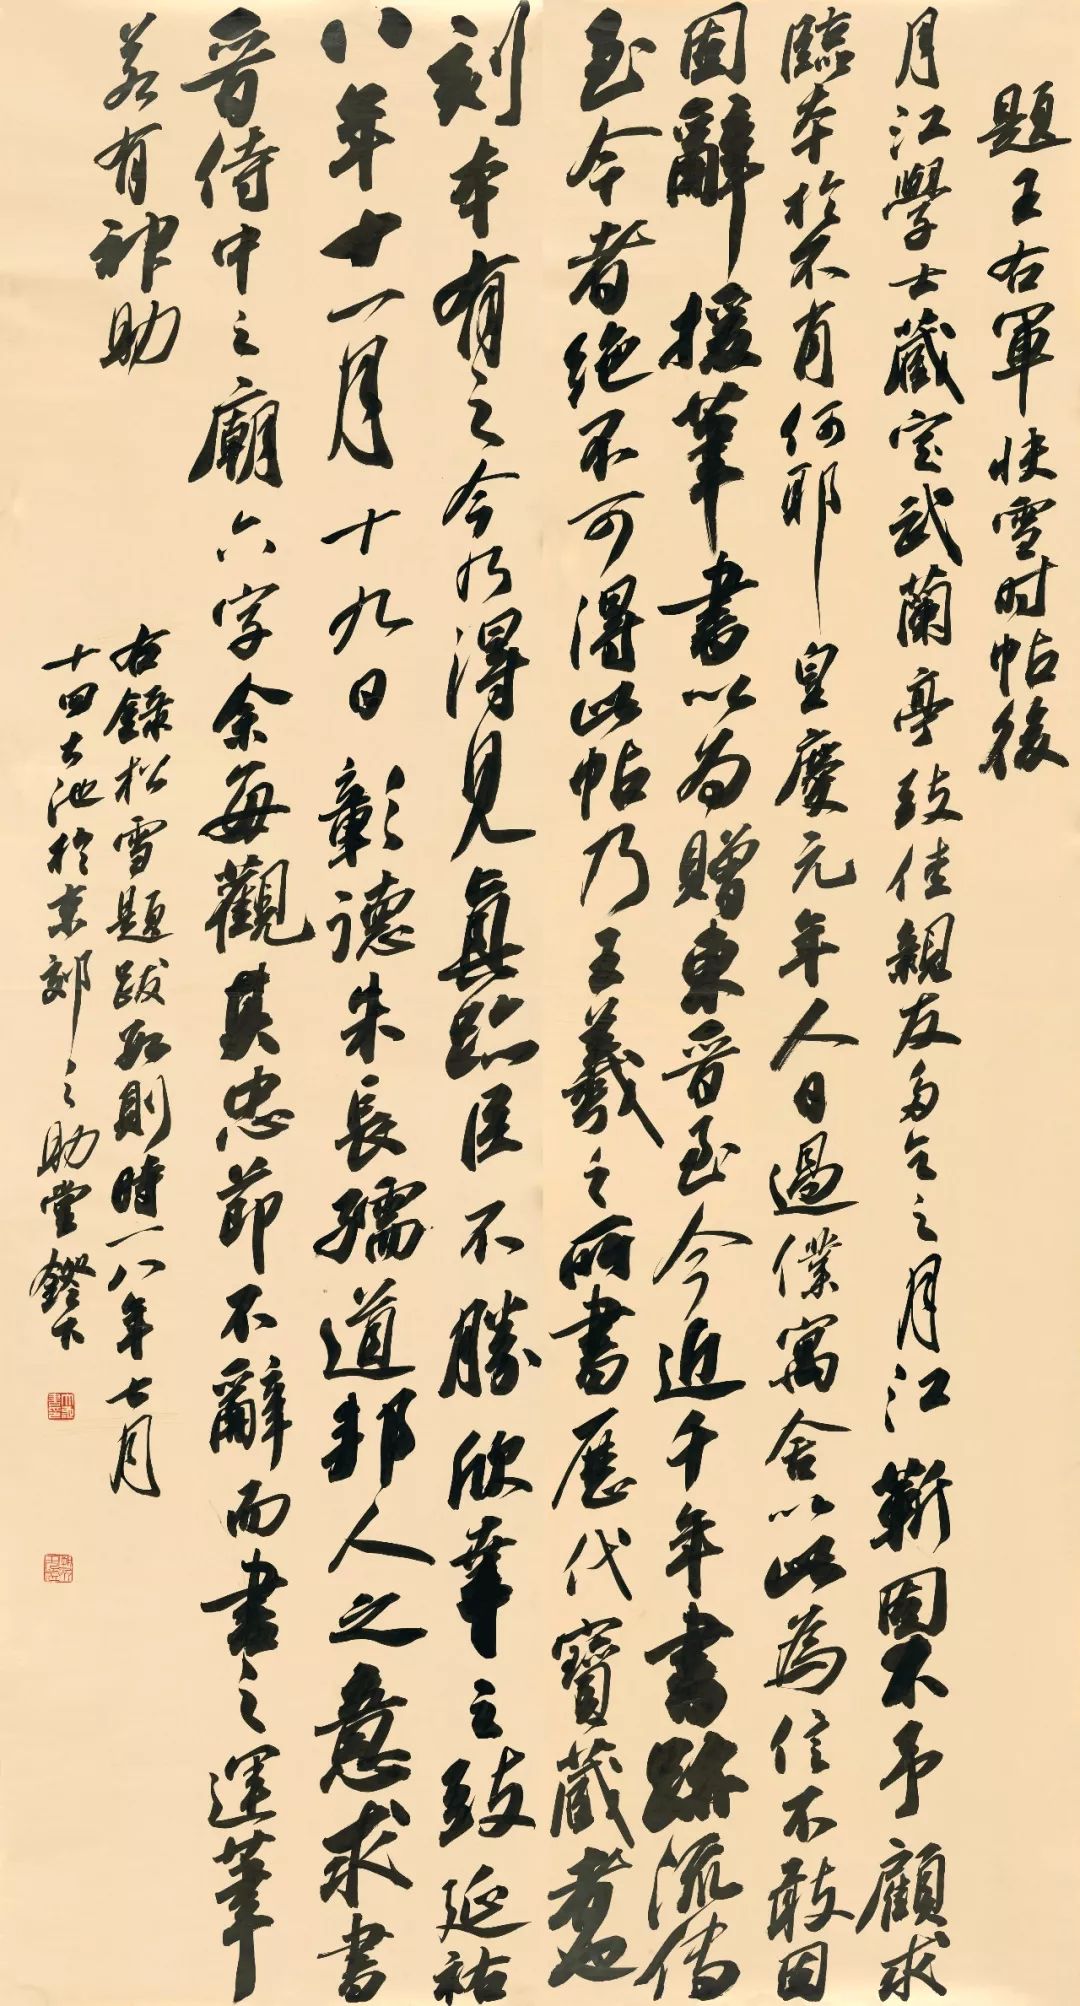 題王右軍快雪时帖後
月江學士藏定武蘭亭致佳親友多乞之月江靳固不予顧求
臨本於不肖何耶皇慶元年人日過僕寓舍以此為信不敢因
固辭援筆書以为贈東晉至今近千年書跡流傳
至今者绝不可得此帖乃王羲之所書歷代寶藏者也
刻本有之今乃得見真跡臣不勝欣幸之致延祐
八年十一月十九日彰德朱長孺道邦人之意求書
晉侍中之廟六字余每觀其忠節不辭而書之運筆
若有神助
右錄松雪題跋數則時一八年七月
十四大池於京郊之助堂鐙下